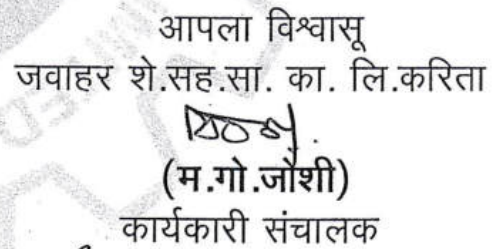 आपला विश्वासू
जवाहर शे.सह.सा. का. लि.करिता
(म.गो.जोशी)
कार्यकारी संचालक